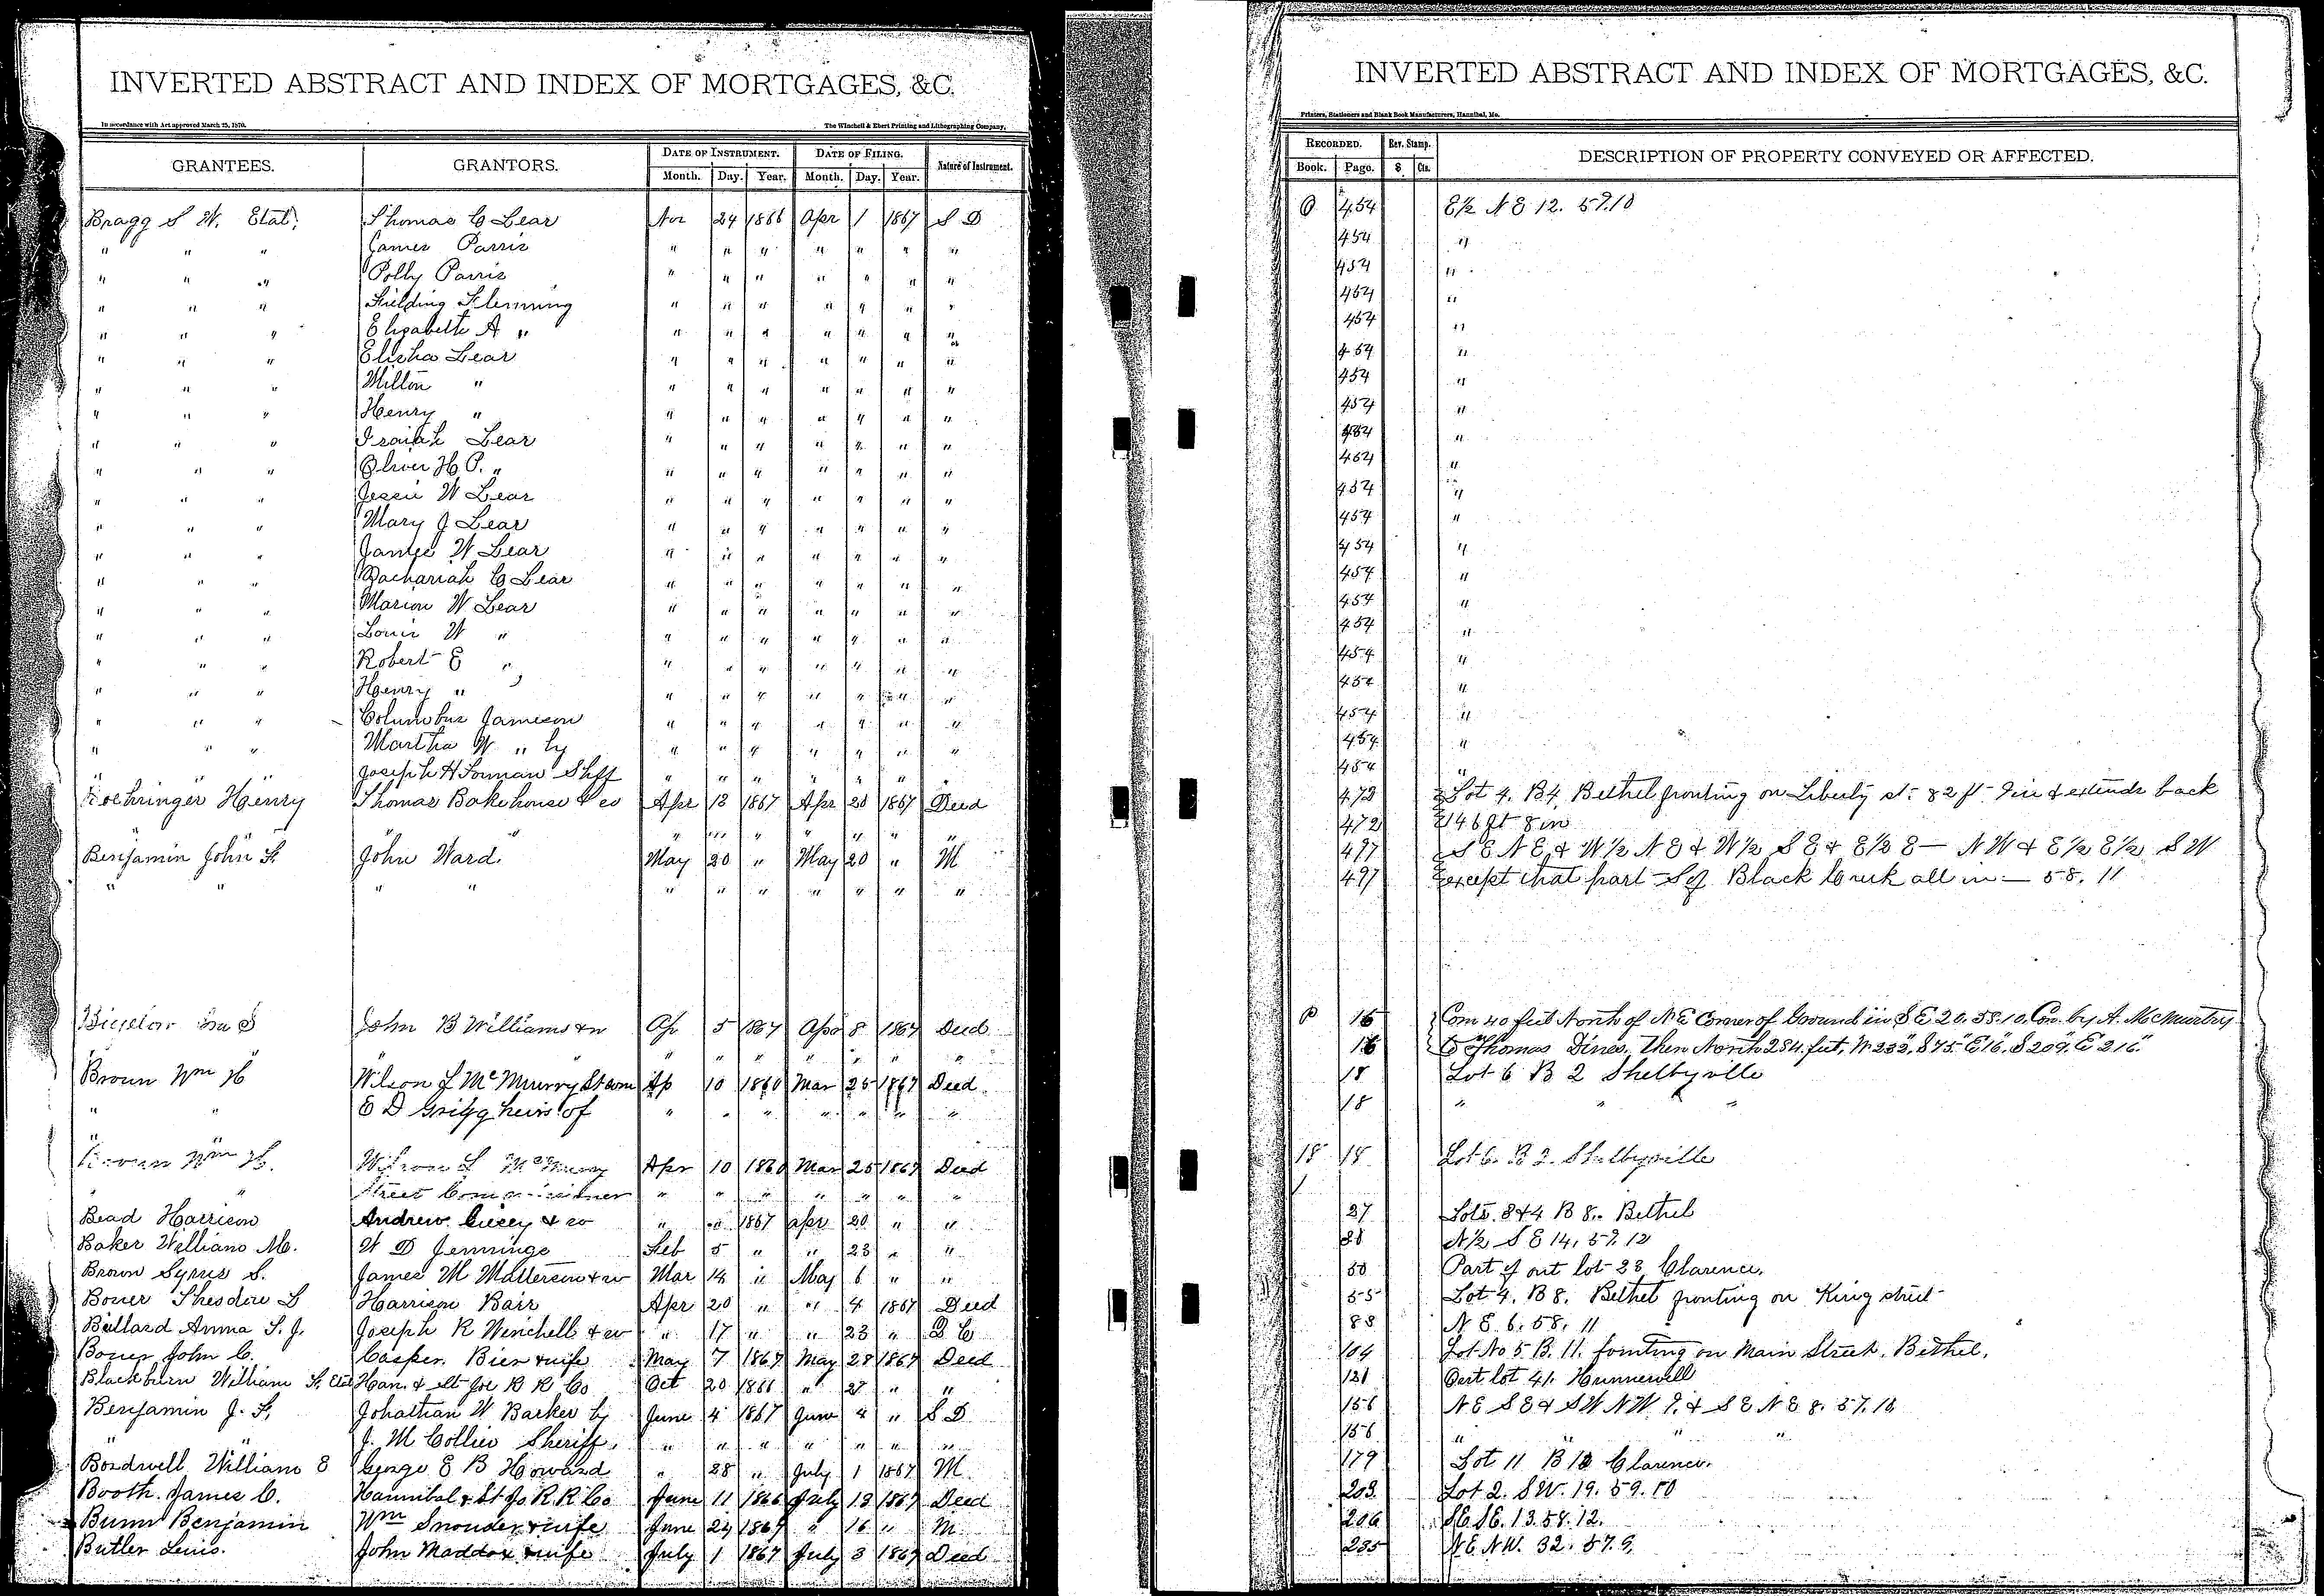 INVERTED ABSTRACT AND INDEX OF MORTGAGES, &C.
In accordance with Act approved March 25, 1870.
The Winchell & Ebert Printing and Lithographing Company,
GRANTEES. GRANTORS. DATE OF INSTRUMENT. DATE OF FILING. Nature of Instrument.
Month. Day. Year. Month. Day. Year.
Bragg S W. Etal; Thomas C Lear Nov 24 1866 Apr 1 1867 S D
" " " James Parris " " " " " " "
" " " Polly Parris " " " " " " "
" " " Fielding Flemming " " " " " " "
" " " Elizabeth A " " " " " " " "
" " " Elisha Lear " " " " " " "
" " " Milton " " " " " " " "
" " " Henry " " " " " " " "
" " " Isaiah Lear " " " " " " "
" " " Oliver H. P. " " " " " " " "
" " " Jessie W Lear " " " " " " "
" " " Mary J Lear " " " " " " "
" " " James W Lear " " " " " " "
" " " Zachariah C Lear " " " " " " "
" " " Marion W Lear " " " " " " "
" " " Louis W " " " " " " " "
" " " Robert E " " " " " " " "
" " " Henry " " " " " " " "
" " " Columbus Jameson " " " " " " "
" " " Martha W " by " " " " " " "
" " " Joseph H Forman Shff " " " " " " "
Boehringer Henry Thomas Bakehouse & co Apr 18 1867 Apr 20 1867 Deed
" " " " " " " "
Benjamin John F. John Ward. May 20 " May 20 " M
" " " " " " " " " " "
Bigelow Ira S John B Williams & w Ap 5 1867 Apr 8 1867 Deed
" " " " " " "
Brown Wm H Wilson L McMurry St com Ap 10 1860 Mar 25 1867 Deed.
" " E D Grigg heirs of " " " " " " "
" "
Brown Wm H. Wilson L McMurry Apr 10 1860 Mar 25 1867 Deed
" " Street Commissioner " " " " " " "
Bead Harrison Andrew Giesy & co " " 1867 apr 20 " "
Baker William M. W D Jennings Feb 5 " " 23 " "
Brown Syrus S. James M Matterson & w Mar 14 " May 6 " "
Bower Theodore L Harrison Bair Apr 20 " " 4 1867 Deed
Ballard Anna S. J. Joseph R Winchell & w " 17 " " 23 " D C
Bower John C. Casper Bier & wife May 7 1867 May 28 1867 Deed
Blackburn William F. Etal Han. & St Joe R R Co Oct 20 1866 " 27 " "
Benjamin J. F. Johathan W Barker by June 4 1867 June 4 " S D
" " J. M Collier Sheriff. " " " " " " "
Bordwell William E George E B Howard " 28 " July 1 1867 M.
Booth James C. Hannibal & St Jo R. R. Co June 11 1866 July 12 1867 Deed
Bunn Benjamin Wm Snouder & wife June 24 1867 " 16 " M
Butler Lewis. John Maddox & wife July 1 1867 July 3 1867 Deed
INVERTED ABSTRACT AND INDEX OF MORTGAGES, &C.
Printers, Stationers and Blank Book Manufacturers, Hannibal, Mo.
RECORDED. Rev. Stamp. DESCRIPTION OF PROPERTY CONVEYED OR AFFECTED.
Book. Page. $ Cts.
O 454 E½ N E 12. 57.10
454 "
454 "
454 "
454 "
454 "
454 "
454 "
454 "
454 "
454 "
454 "
454 "
454 "
454 "
454 "
454 "
454 "
454 "
454 "
454 "
472 Lot 4. B4, Bethel fronting on Liberty st. 82 ft. 9in & extends back
472 146 ft 8 in
497 S E N E & W ½ N E & W ½ S E & E ½ E— N W & E ½ E ½ S W
497 except that part S of Black Creek all in — 58. 11
P 16 Com 40 feet North of N E Corner of Ground in S E 20. 58. 10. Con. by A. McMurtry
16 to Thomas Dines. Then North 284. feet, W. 232, S 75 E 16, S 209. E 216"
18 Lot 6 B 2 Shelbyville
18 " " "
18 18 Lot 6. B 2. Shelbyville
27 Lots. 3 & 4 B 8. Bethel
28 N ½ S E 14, 57. 12
50 Part of out lot 23 Clarence.
55 Lot 4. B 8. Bethel fronting on King street
88 N E. 6. 58. 11
104 Lot No 5 B. 11. fronting on Main Street. Bethel.
121 Part lot 41. Hunnewell
156 N E S E & S W N W 9. & S E N E 8. 57. 10
156 " " "
179 Lot 11 B 12 Clarence.
203 Lot 2. S W. 19. 59. 10
206 S E S E. 13. 58. 12.
235 N. E. N W. 32. 57. 9.